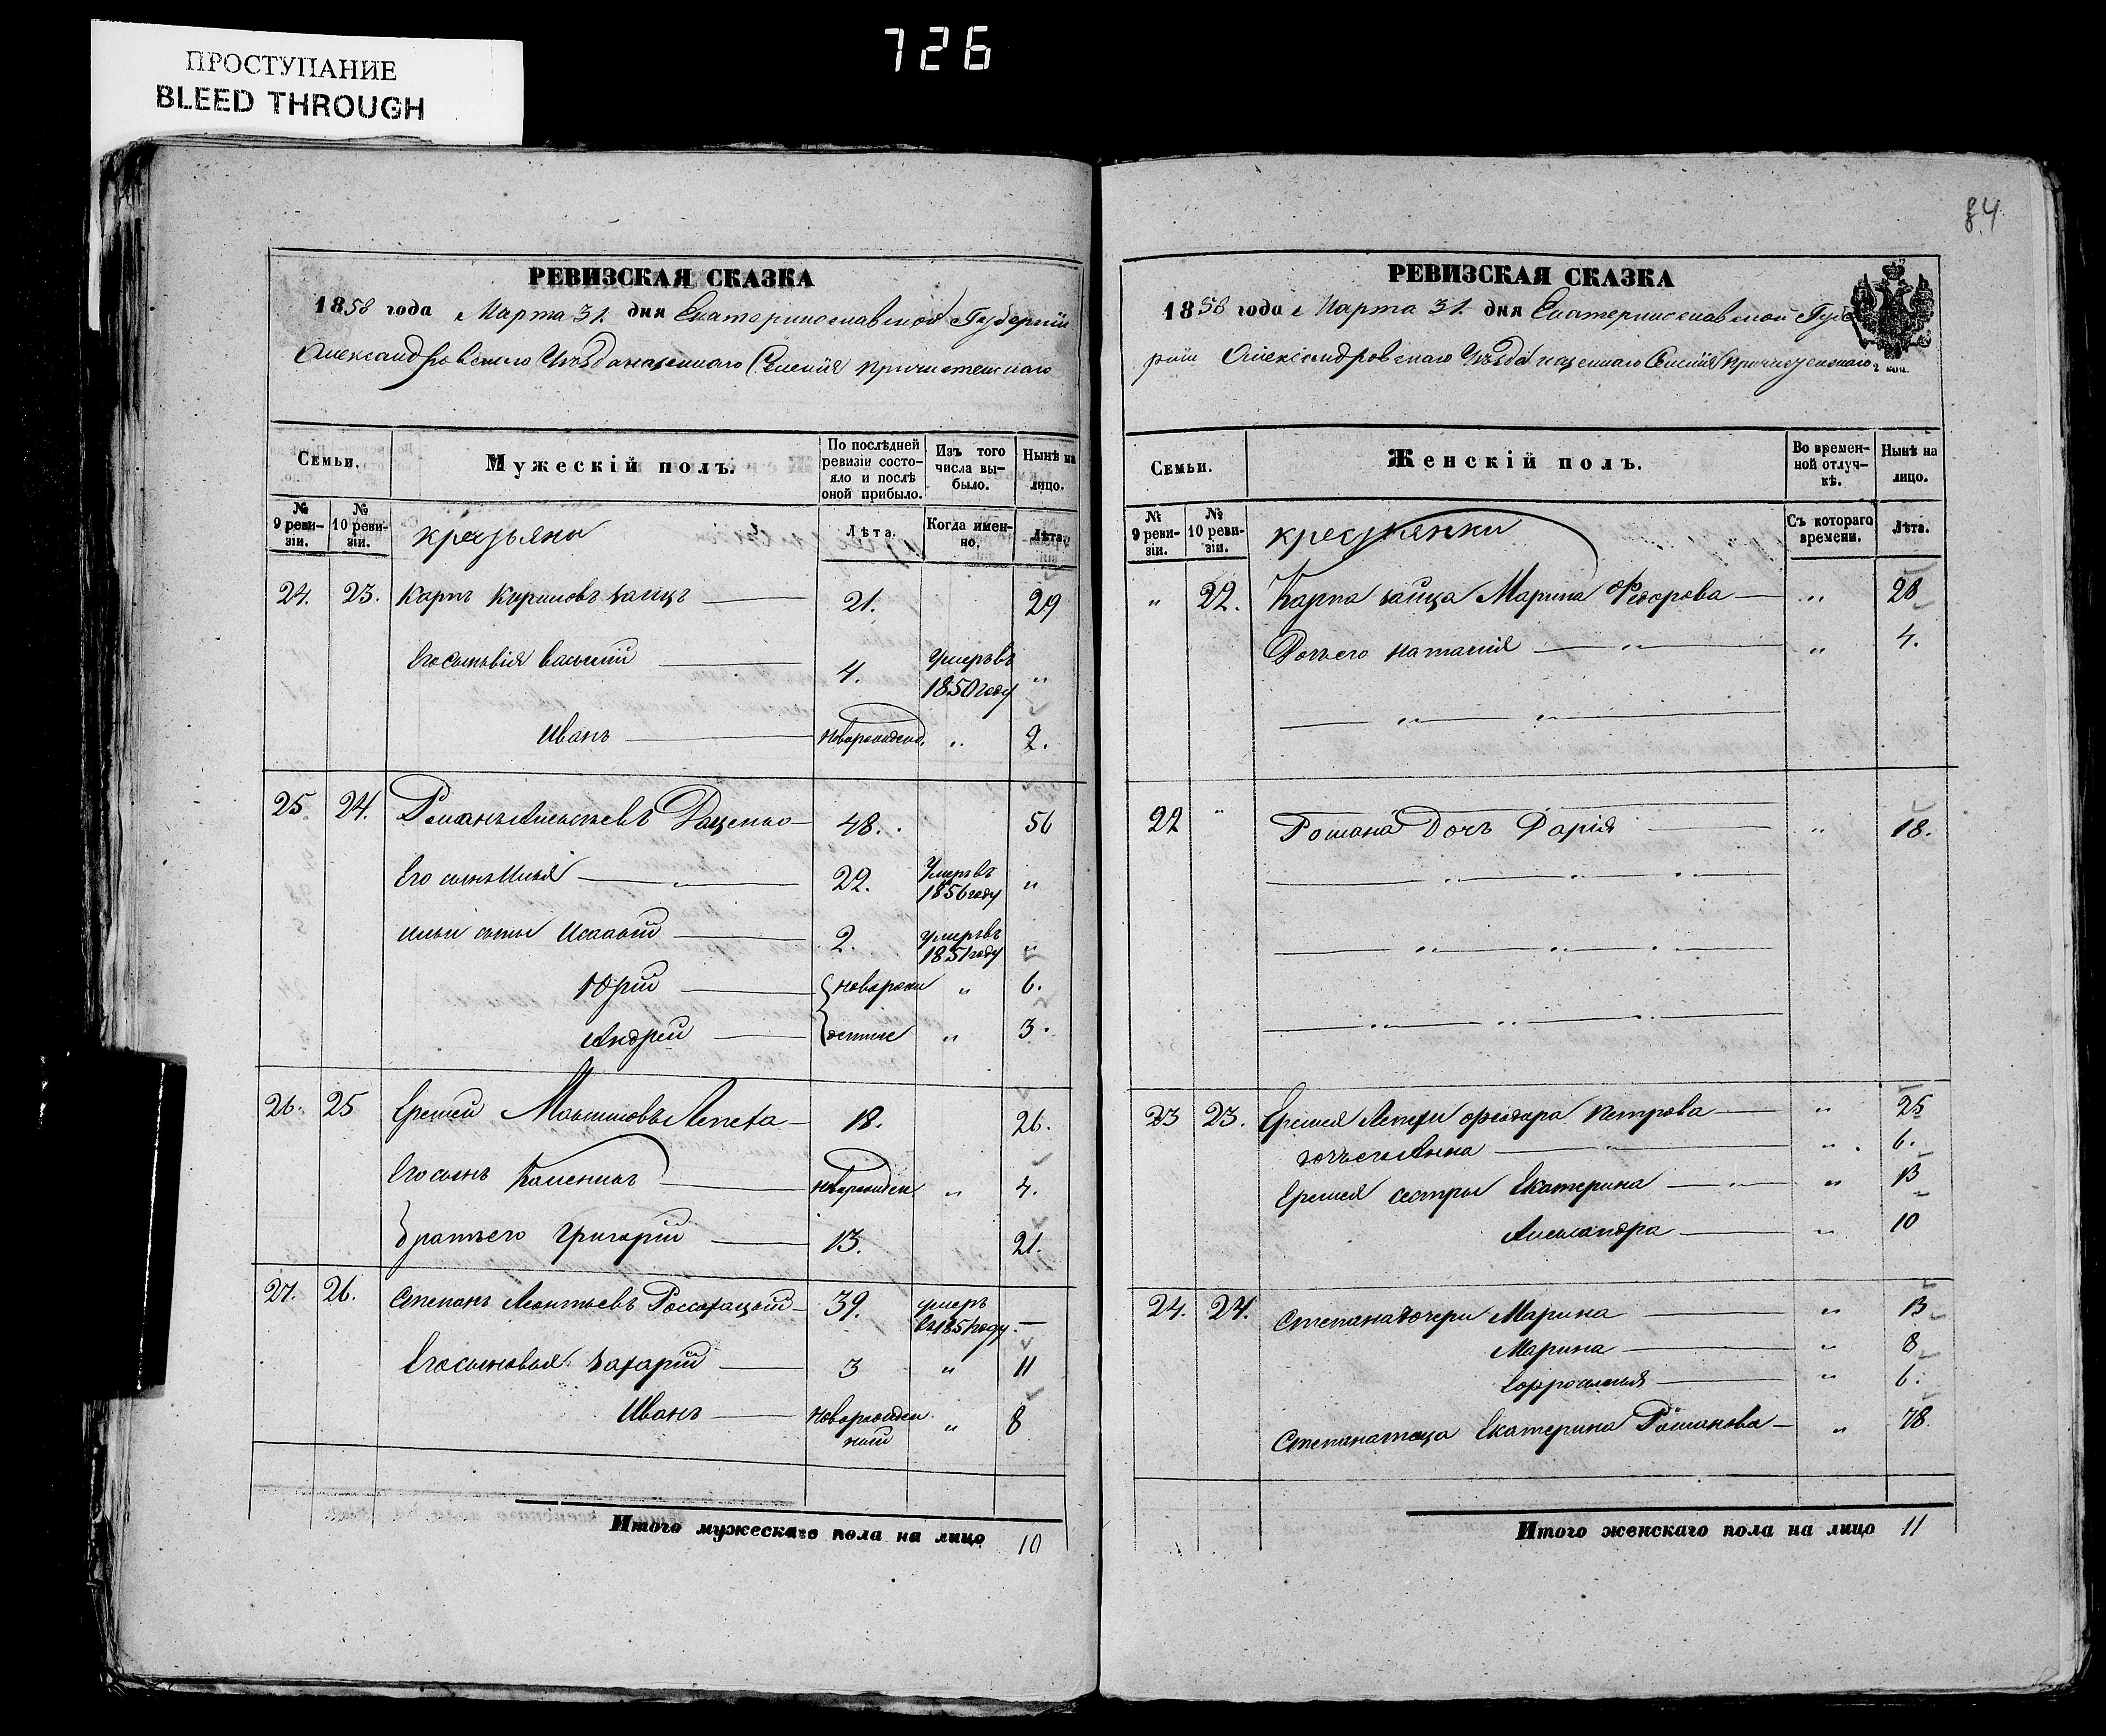 ПРОСТУПАНИЕ
BLEED THROUGH
726
РЕВИЗСКАЯ СКАЗКА
1858 года Марта 31. дня Екатеринославской Губерніи
Александровского Уѣзда казенного Селенія Пречистенскаго
Семьи.
Мужескій полъ.
По послѣдней ревизіи состояло и послѣ оной прибыло.
Изъ того числа выбыло.
Нынѣ на лицо.
№ 9 ревизіи.
№ 10 ревизіи.
Лѣта.
Когда именно.
Лѣта.
24. 23. Карпъ Кириловъ Заицъ 21. 29
Василій 4. Умеръ въ 1850 году "
Иванъ " 2.
25. 24. Романъ Даценко 48. 56
Его сынъ Илья " 22. Умеръ въ 1856 году "
Ильи сыны 2. умеръ въ 1851 году "
Юрій новорож " 6.
Андрей денные " 3.
26. 25 Еремей Лепеха 18. 26.
Его сынъ " 4.
Братъ его Григорій 13. 21.
27. 26. Степанъ Леонтьевъ 39. умеръ въ 1851 году. —
Его сыновья Захарій 3 " 11
Иванъ новорожден ный " 8
Итого мужескаго пола на лицо 10
84
РЕВИЗСКАЯ СКАЗКА
1858 года Марта 31. дня Екатеринославской Губе
рніи Александровскаго Уѣзда казеннаго Селенія Пречистенскаго
2 коп.
Семьи.
Женскій полъ.
Во временной отлучкѣ.
Нынѣ на лицо.
№ 9 ревизіи.
№ 10 ревизіи.
крестьянки
Съ котораго времени.
Лѣта.
" 22. Карпа Зайца Марина Федорова " 28
Дочь его Наталія " " 4.
22 " Романа Дочь Дарія " 18.
23 23. Еремея Лепехи Феодора Петрова " 25
дочь его Анна " " 6.
Еремея сестры Екатерина " " 13
Александра " 10
24. 24. Степана дочери Марина " 13
Марина " 8
" 6.
Екатерина Романова " 78.
Итого женскаго пола на лицо 11